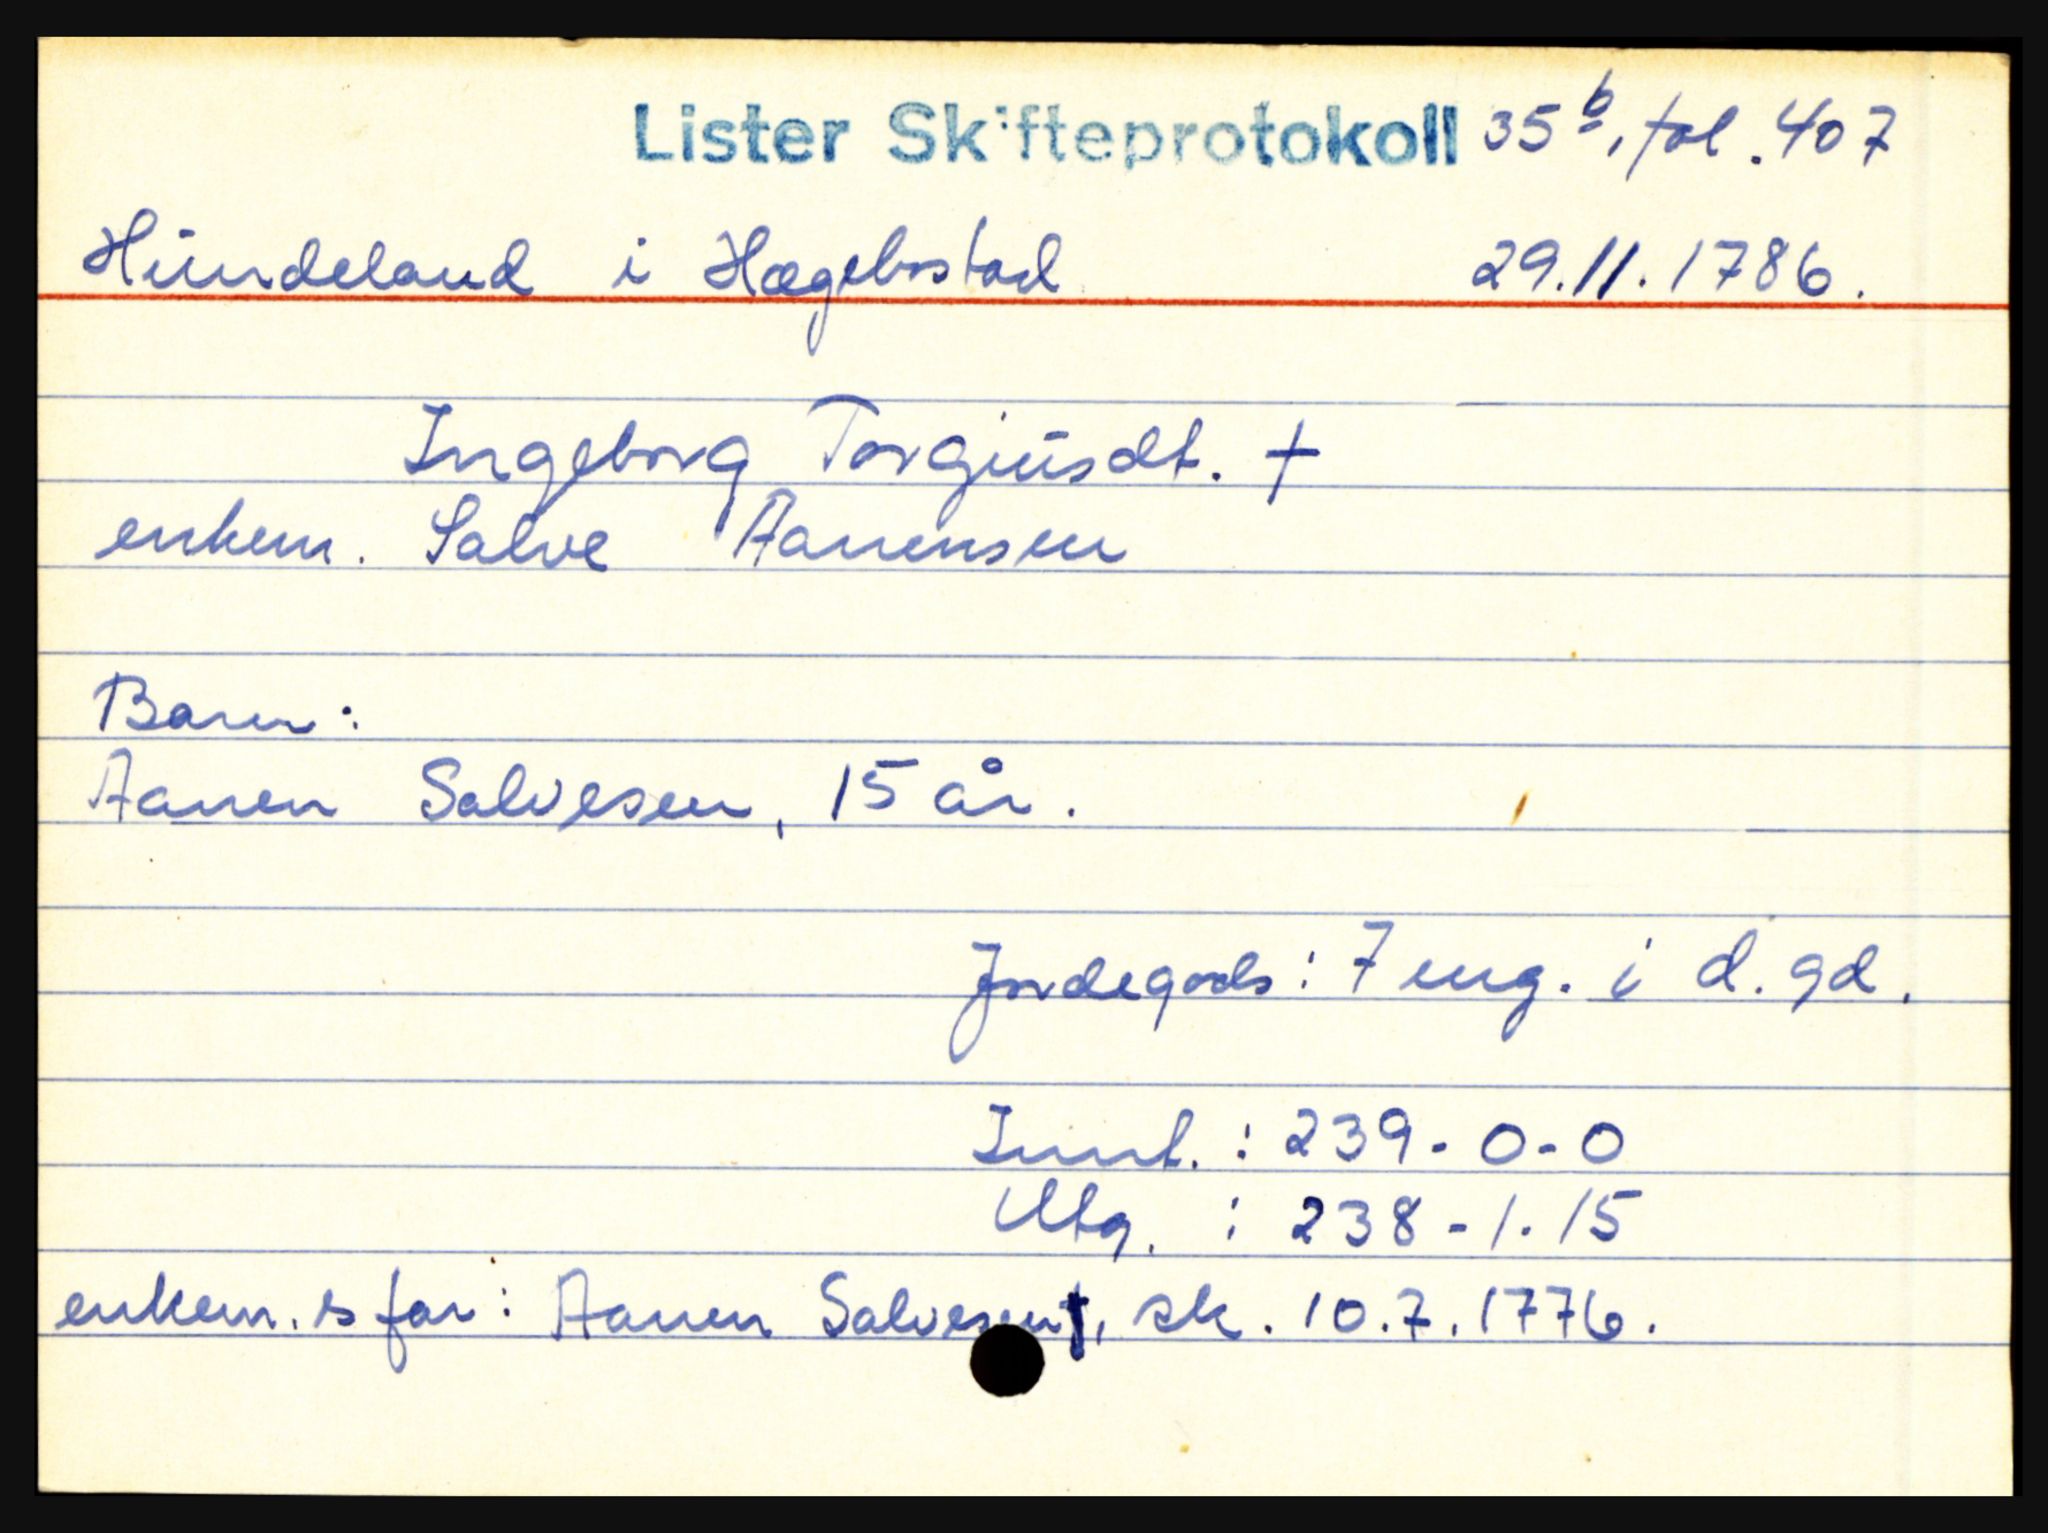 Lister Skifteprotokoll 35b, fol. 407
Hundeland i Hægebostad 29.11.1786.
Ingeborg Torgiusdt. †
enkem. Salve Aanensen
Barn:
Aanen Salvesen, 15 år.
Jordegods: 7 eng. i d. gd.
Innt. : 239-0-0
Utg. : 238-1.15
enkem.s far: Aanen Salvesen†, sk. 10.7.1776.